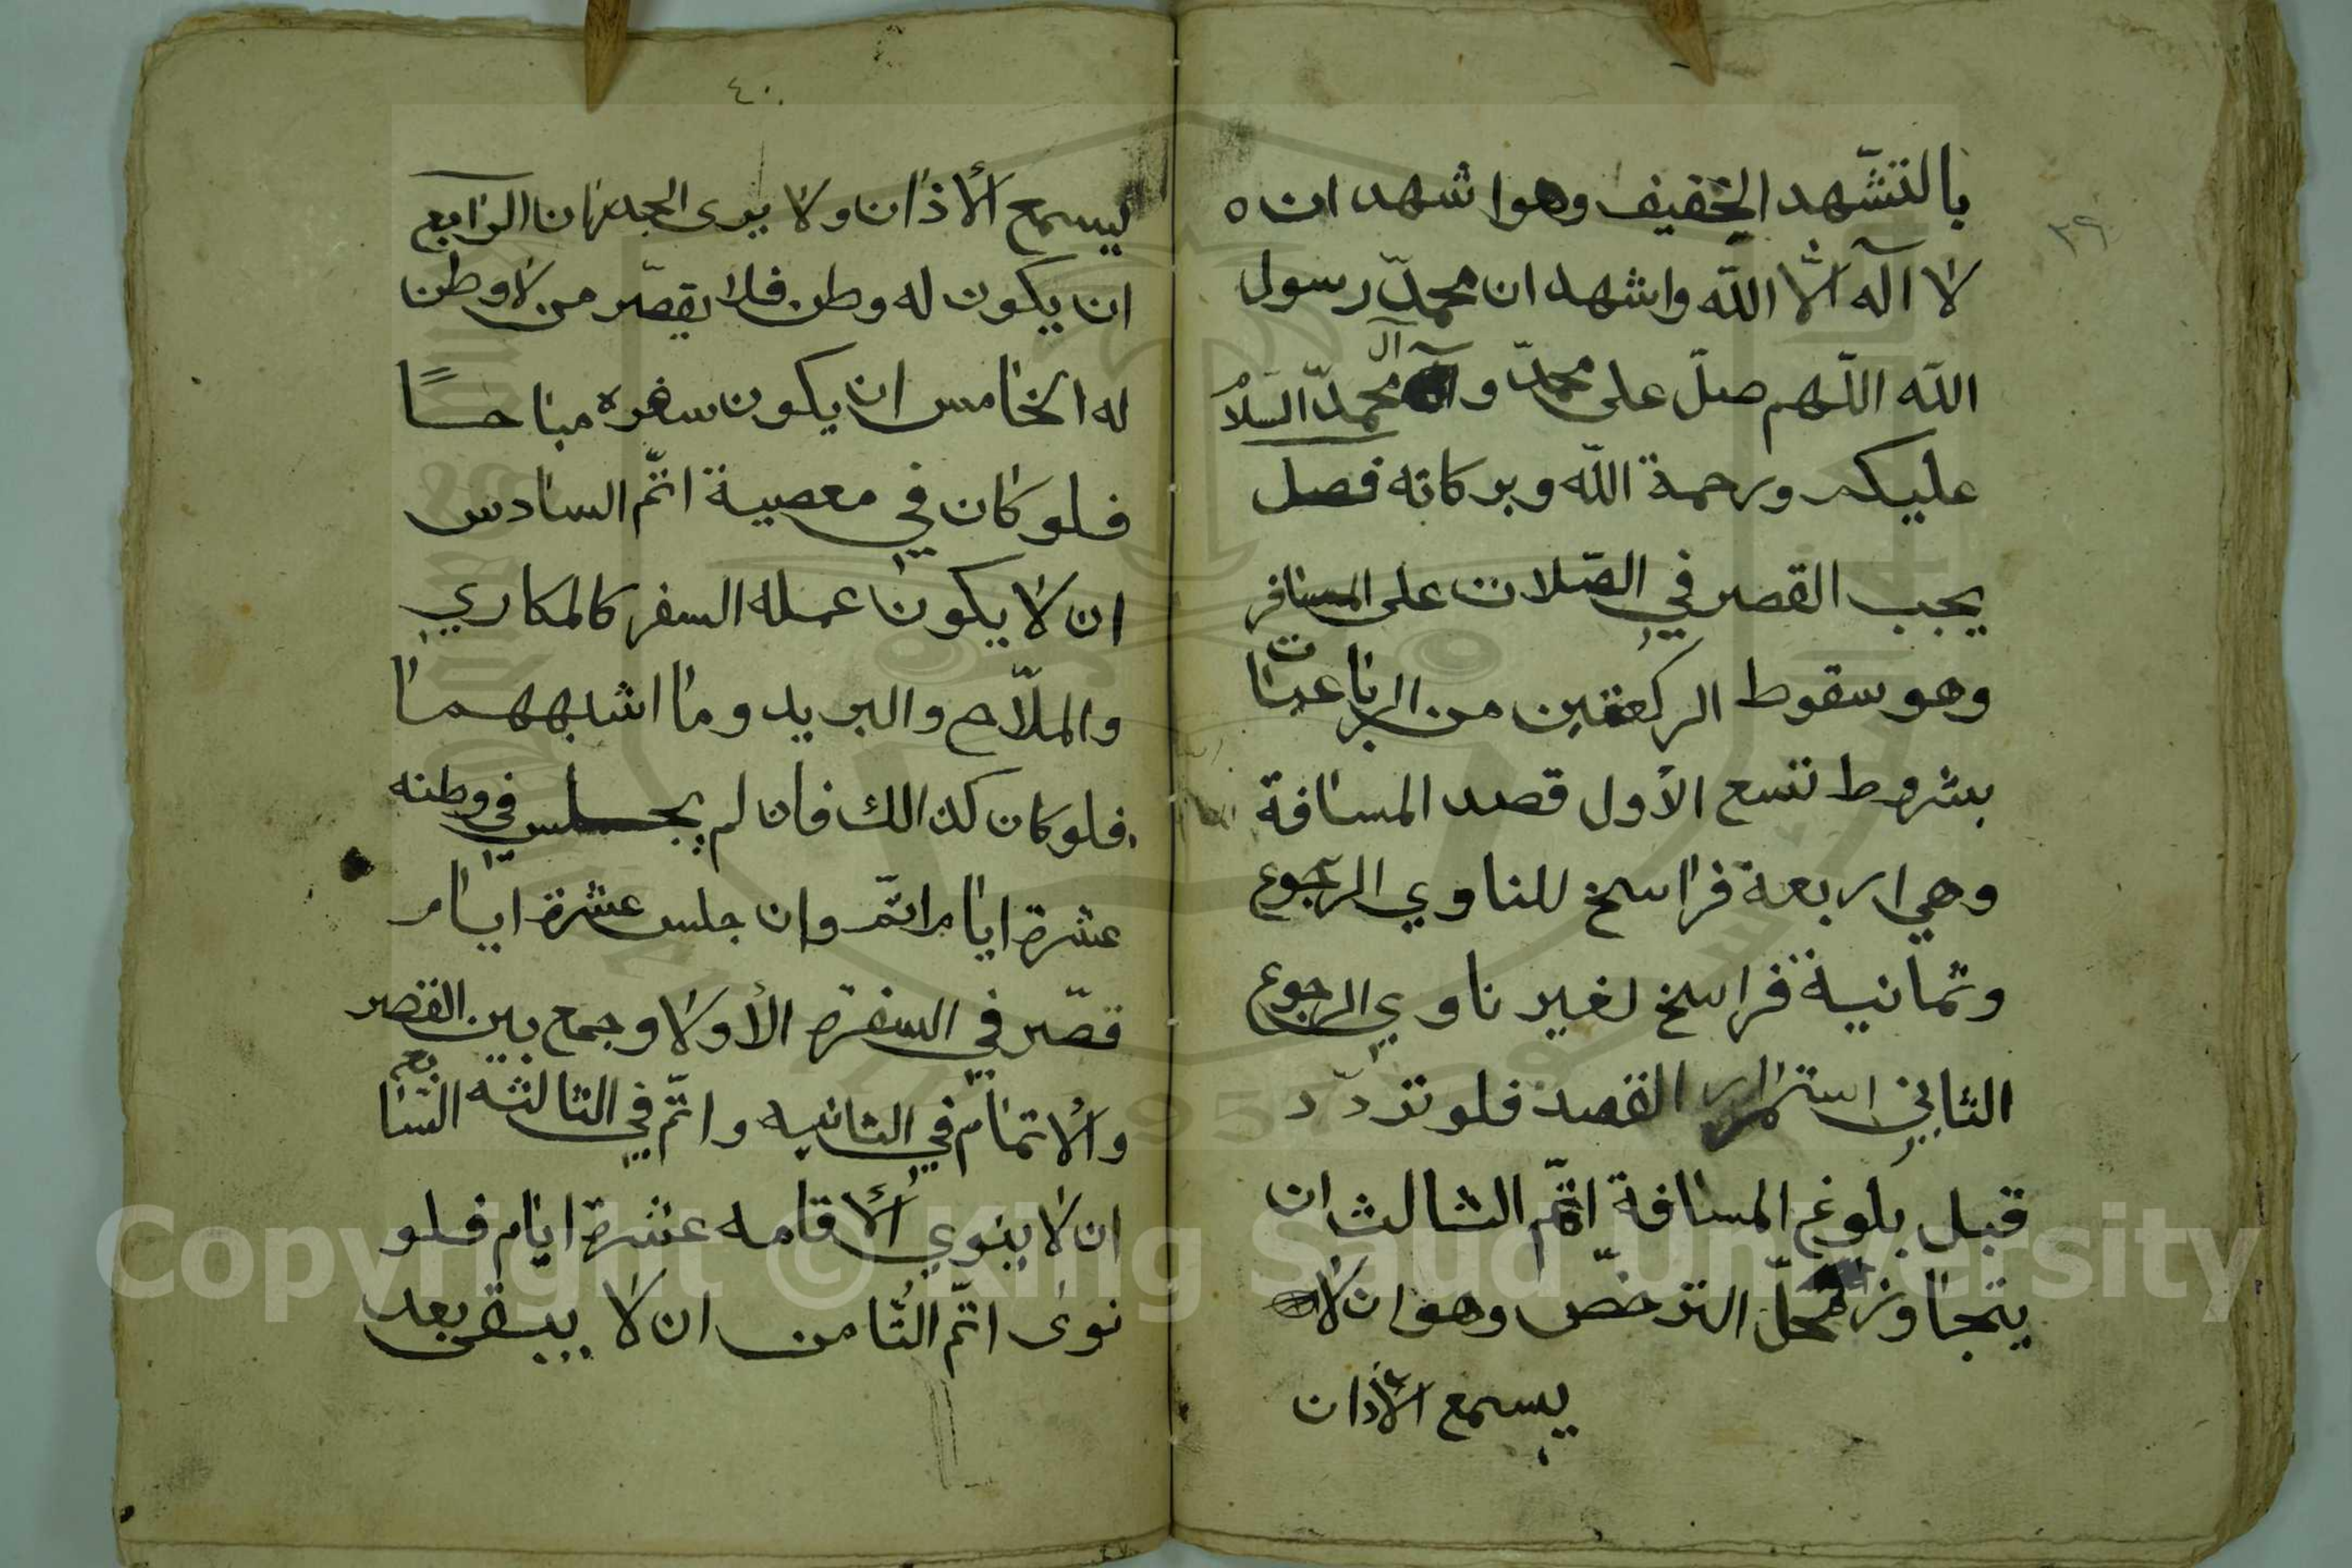 ٣٩
بالتشّهد الخفيف وهو اشهد ان ه
لا اله الّا اللّه واشهد ان محمدّ رسول
اللّه اللّهم صلّ على محمدّ و آل محمدّ السلام
عليكم ورحمة اللّه وبركاته فصل
يجب القصر في الصّلات على المسافر
وهو سقوط الركعتين من الرباعيّات
بشروط تسع الأول قصد المسافة
وهي اربعة فراسخ للناوي الرجوع
وثمانية فراسخ لغير ناوي الرجوع
الثاني استمرار القصد فلو تردّد
قبل بلوغ المسافة اتمّ الثالث ان
يتجاوز محلّ الترخّص وهو ان لا
يسمع الأذان
٤٠
ليسمع الأذان ولا يرى الجدران الرابع
ان يكون له وطن فلا يقصّر من لا وطن
له الخامس ان يكون سفره مباحــًا
فلو كان في معصية اتمّ السادس
ان لا يكون عمله السفر كالمكاري
والملّاح والبريد وما اشبههما
فلو كان كذالك فان لم يجلس في وطنه
عشرة ايام اتمّ وان جلس عشرة ايام
قصّر في السفرة الأولا وجمع بين القصر
والأتمام في الثانيه واتمّ في الثالثه السابع
ان لا ينوي الأقامه عشرة ايام فلو
نوى اتمّ الثامن ان لا يبقى بعد
Copyright © King Saud University
1957